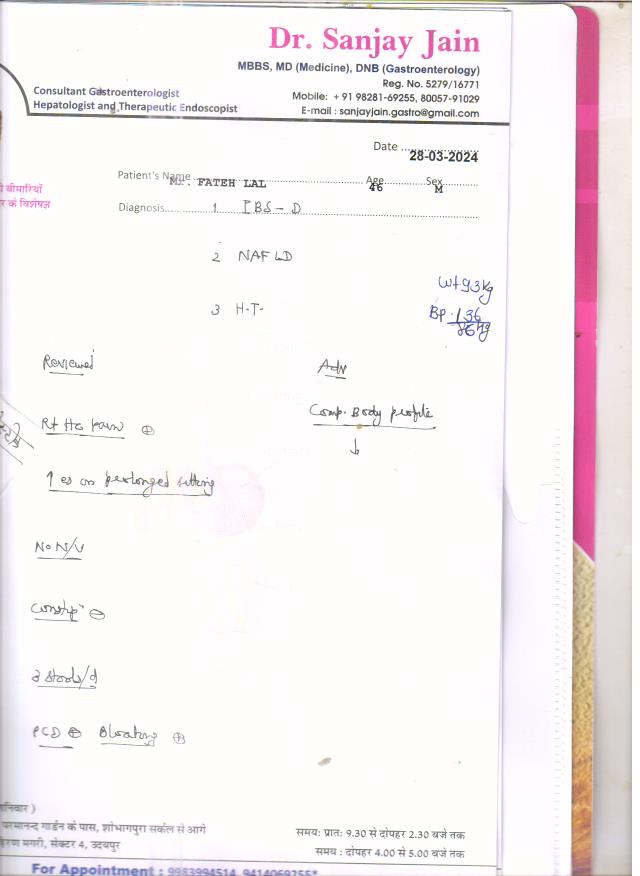 Dr. Sanjay Jain
MBBS, MD (Medicine), DNB (Gastroenterology)
Reg. No. 5279/16771
Mobile: +91 98281-69255, 80057-91029
E-mail : sanjayjain.gastro@gmail.com
Consultant Gastroenterologist
Hepatologist and Therapeutic Endoscopist
Date 28-03-2024
बीमारियों
र के विशेषज्ञ
Patient's Name Mr. FATEH LAL Age 46 Sex M
Diagnosis 1 IBS-D
2 NAFLD
3 H.T.
Wt 93kg
BP. 136
Reviewed
Adv
Comp. Body profile
↓
Rt Hc pain ⊕
↑es on prolonged sitting
No N/V
Constipn ⊖
3 stools/d
PCD ⊕ Bloating ⊕
निवार )
परमानन्द गार्डन के पास, शोभागपुरा सर्कल से आगे
हिरण मगरी, सेक्टर 4, उदयपुर
समय: प्रातः 9.30 से दोपहर 2.30 बजे तक
समय : दोपहर 4.00 से 5.00 बजे तक
For Appointment : 9983994514, 9414069755*